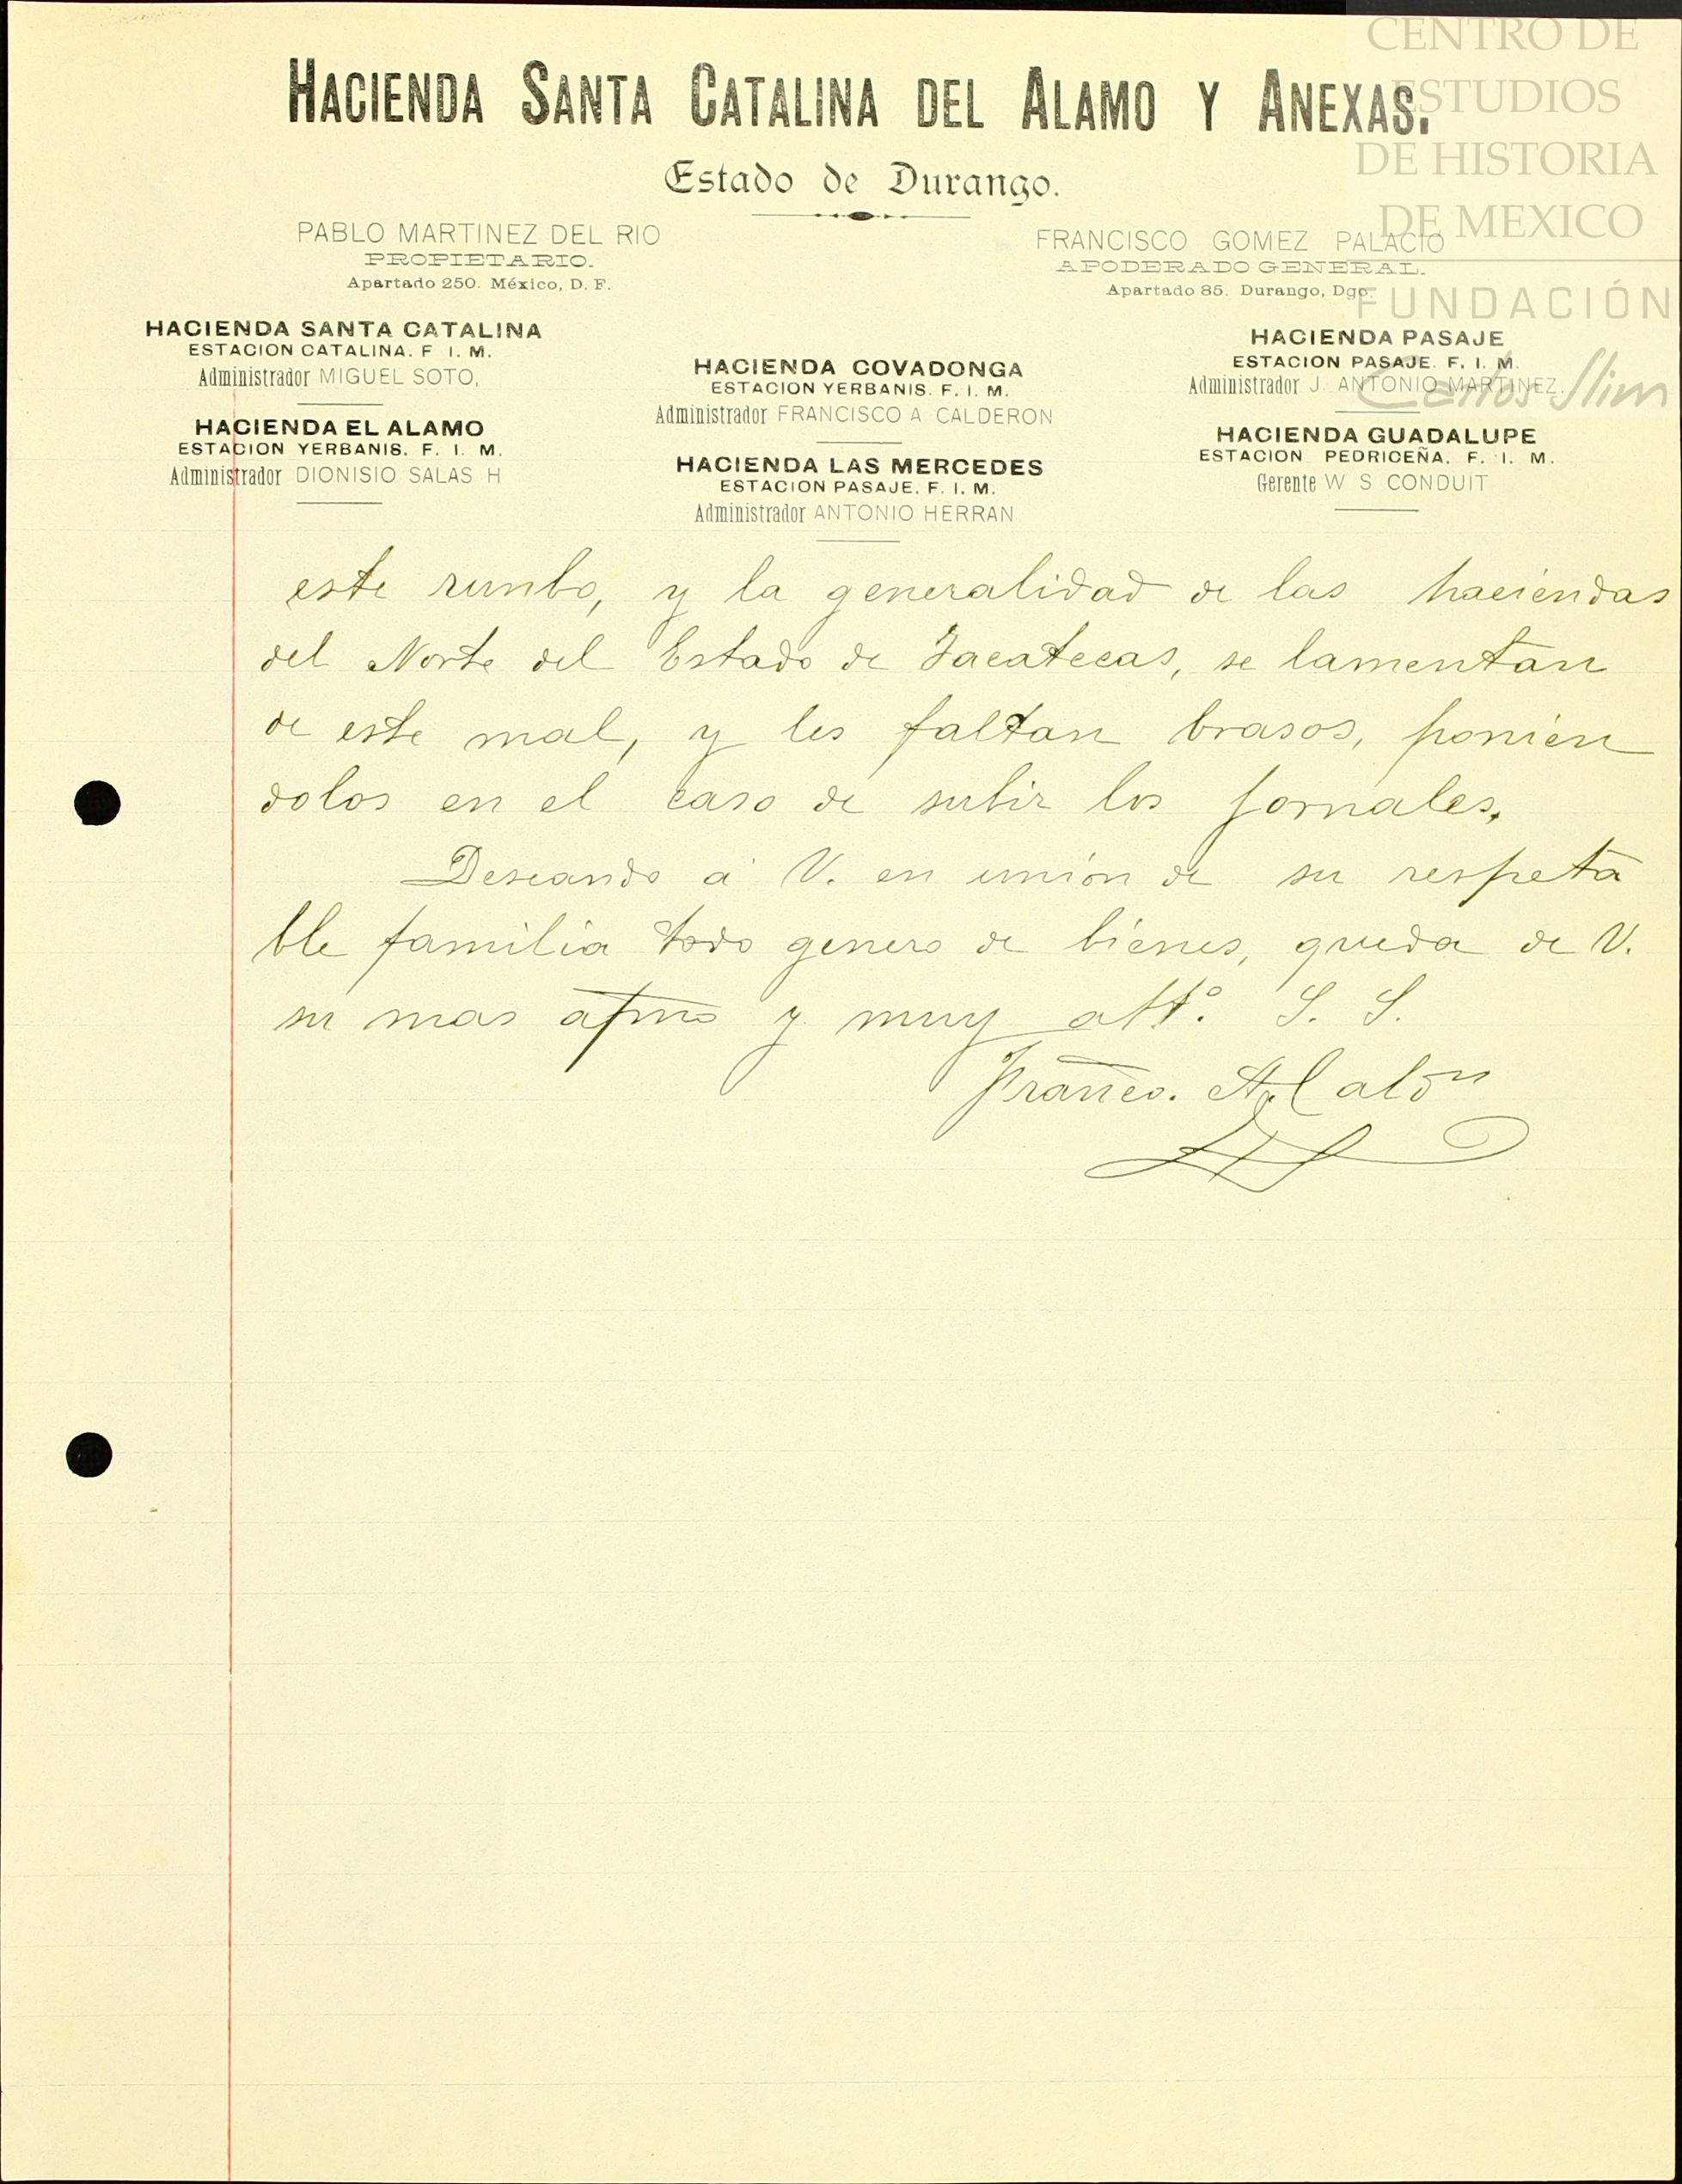 HACIENDA SANTA CATALINA DEL ALAMO Y ANEXAS.
Estado de Durango.
PABLO MARTINEZ DEL RIO
PROPIETARIO.
Apartado 250. México, D. F.
FRANCISCO GOMEZ PALACIO
APODERADO GENERAL.
Apartado 85. Durango, Dgo.
HACIENDA SANTA CATALINA
ESTACION CATALINA. F. I. M.
Administrador MIGUEL SOTO,
HACIENDA EL ALAMO
ESTACION YERBANIS. F. I. M.
Administrador DIONISIO SALAS H
HACIENDA COVADONGA
ESTACION YERBANIS. F. I. M.
Administrador FRANCISCO A CALDERON
HACIENDA LAS MERCEDES
ESTACION PASAJE. F. I. M.
Administrador ANTONIO HERRAN
HACIENDA PASAJE
ESTACION PASAJE. F. I. M
Administrador J. ANTONIO MARTINEZ.
HACIENDA GUADALUPE
ESTACION PEDRICEÑA. F. I. M.
Gerente W S CONDUIT
CENTRO DE
ESTUDIOS
DE HISTORIA
DE MEXICO
FUNDACIÓN
Carlos Slim
este rumbo, y la generalidad de las haciendas
del Norte del Estado de Zacatecas, se lamentan
de este mal, y les faltan brasos, ponien
dolos en el caso de subir los jornales.
Deseando á V. en unión de su respeta
ble familia todo genero de bienes, queda de V.
su mas afmo y muy att.º S. S.
Franco. A. Calón